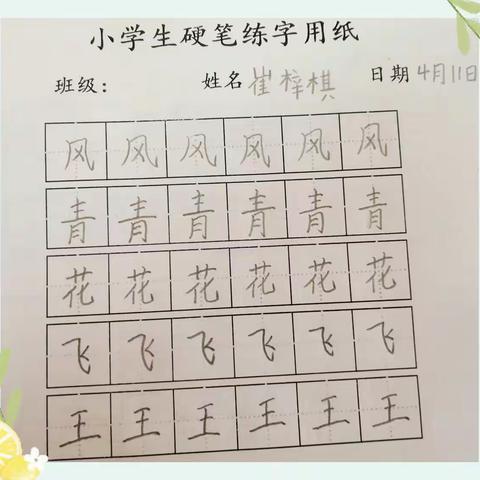 小学生硬笔练字用纸
班级： 姓名 崔梓棋 日期 4月11日
风 风 风 风 风 风
青 青 青 青 青 青
花 花 花 花 花 花
飞 飞 飞 飞 飞 飞
王 王 王 王 王 王